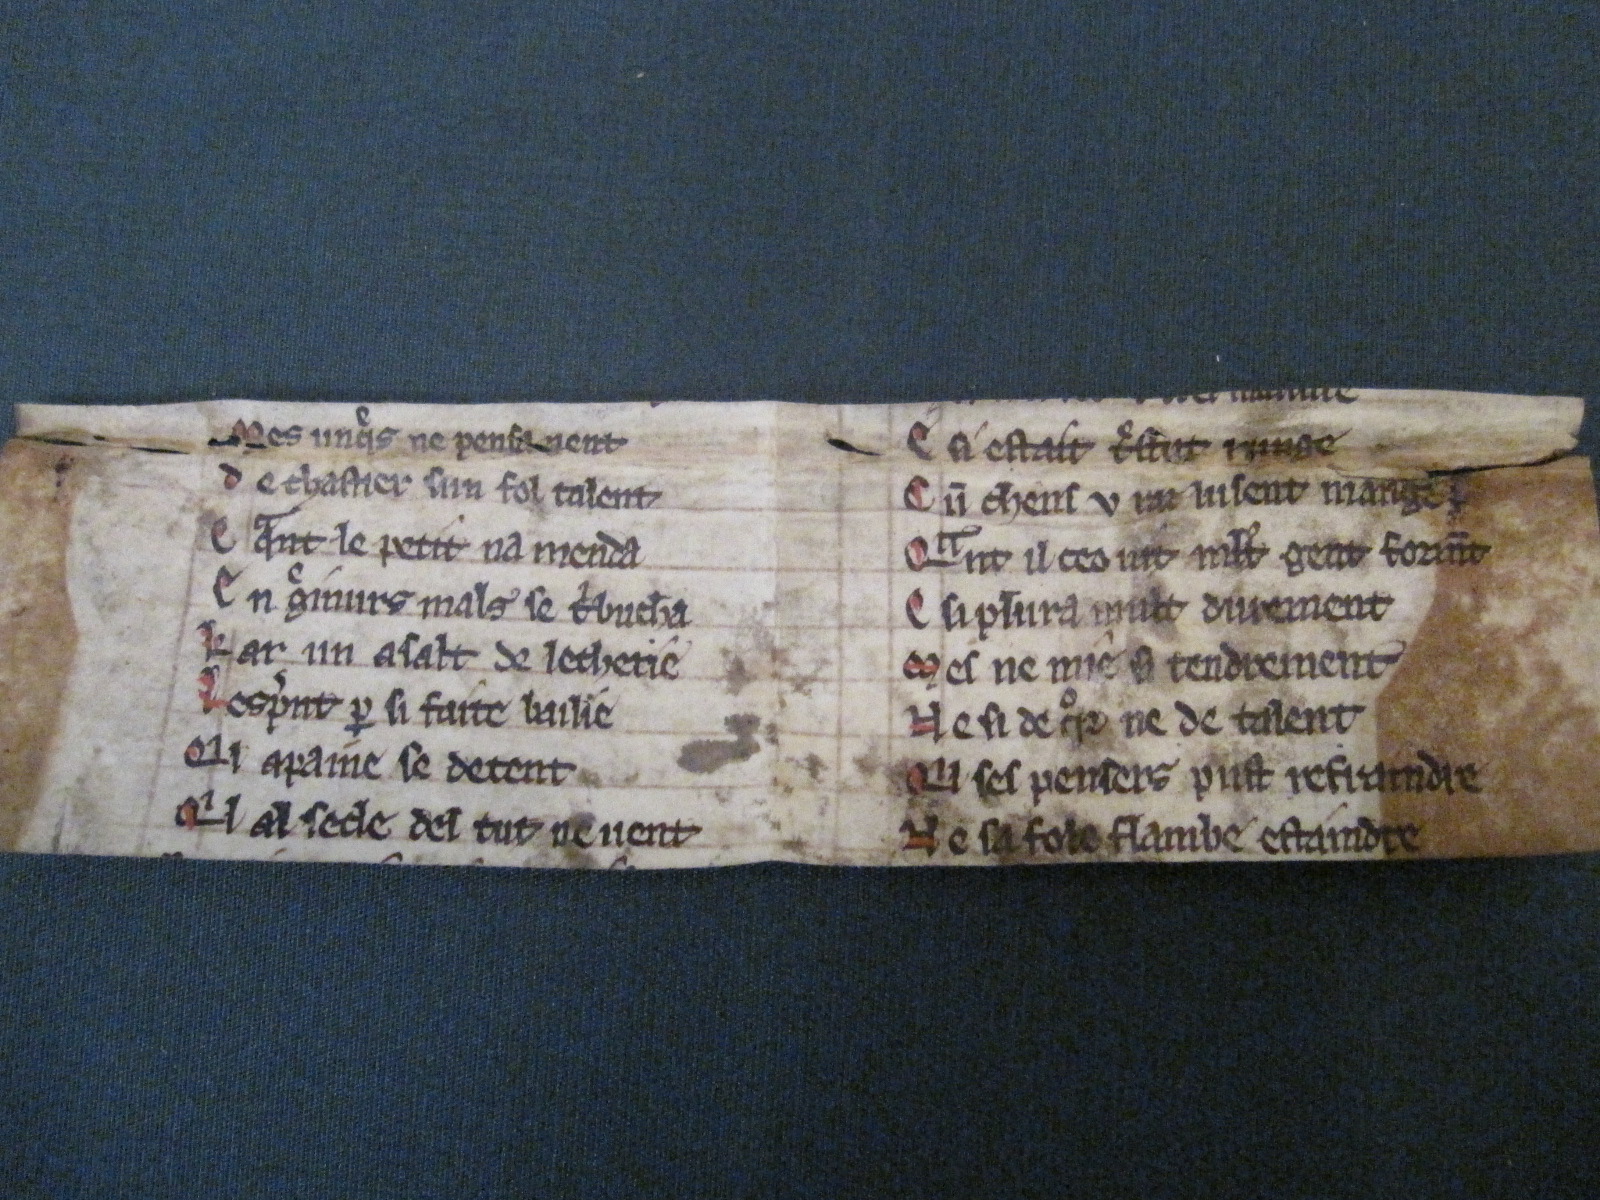 Mes unq̃s ne pensa nent
d e chastier sun fol talent
E q̃nt le petit na menda
E n g̃inurs mals se t̃bucha
K ar un asalt de lecherie
L esp̃nt ꝑ si faite bailie
Q ui apaine se detent
Q il al secle del tut ne uent
E si estait
C ũ chens v
Q ñt il ceo uit mlt̃ gent form̃t
E si plura mult durement
M es ne mie si tendrement
N e si de q̃r ne de talent
Q il ses pensers pust refraindre
N e sa fole flambe estaindre